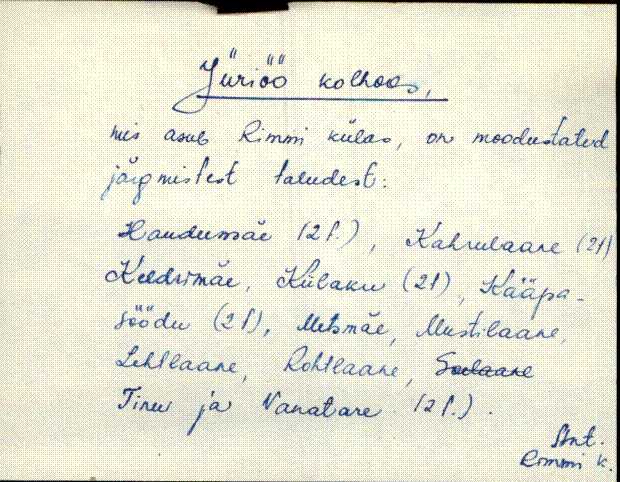 Jüriöö kolhoos,
mis asub Rimmi külas, on moodustatud
järgmistest taludest:
Haudumäe (2 t.), Kahrulaane (2 t)
Keldrimäe, Külaku (2 t), Kääpa-
söödu (2 t), Metsmäe, Mustilaane,
Lehtlaane, Rohtlaane, Soelaane
Tinu ja Vanatare (2 t.).
Ant.
Rimmi k.